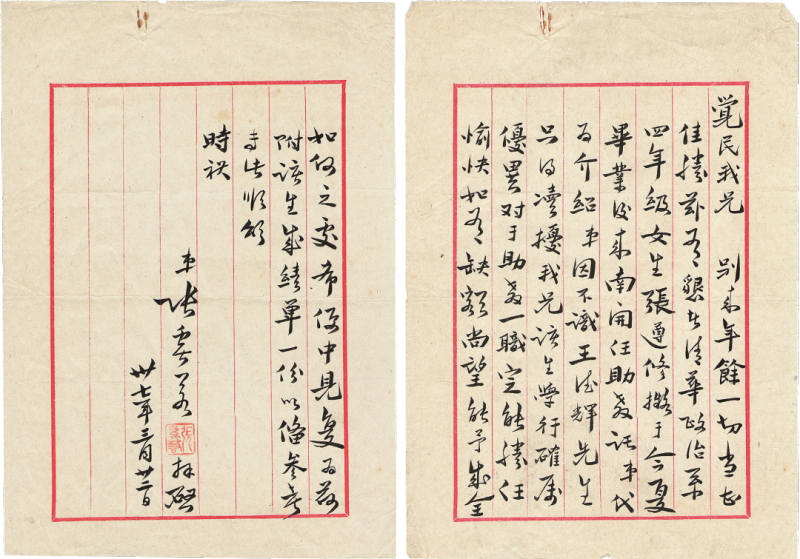 覚民我兄 别来年餘一切当甚
佳勝兹有懇者清華政治系
四年級女生張遵修擬于今夏
畢業後来南開任助教託弟代
為介紹弟因不識王德輝先生
只得凟擾我兄該生学行確属
優異对于助教一職定能勝任
愉快如有缺額尚望能予成全
如何之處希便中見复為荷
附該生成績單一份以偹参考
专此順頌
時祺
弟
张奚若
拜啓
卅七年三月廿二日